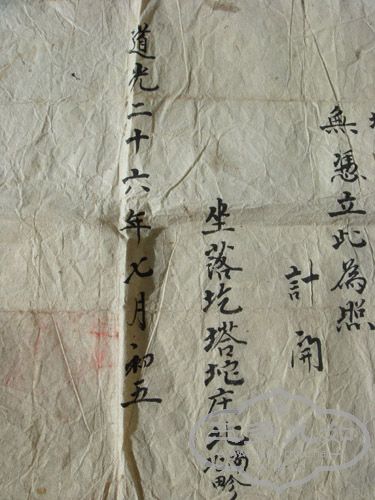 無憑立此為照
計開
坐落圪塔坨庄北
道光二十六年七月初五